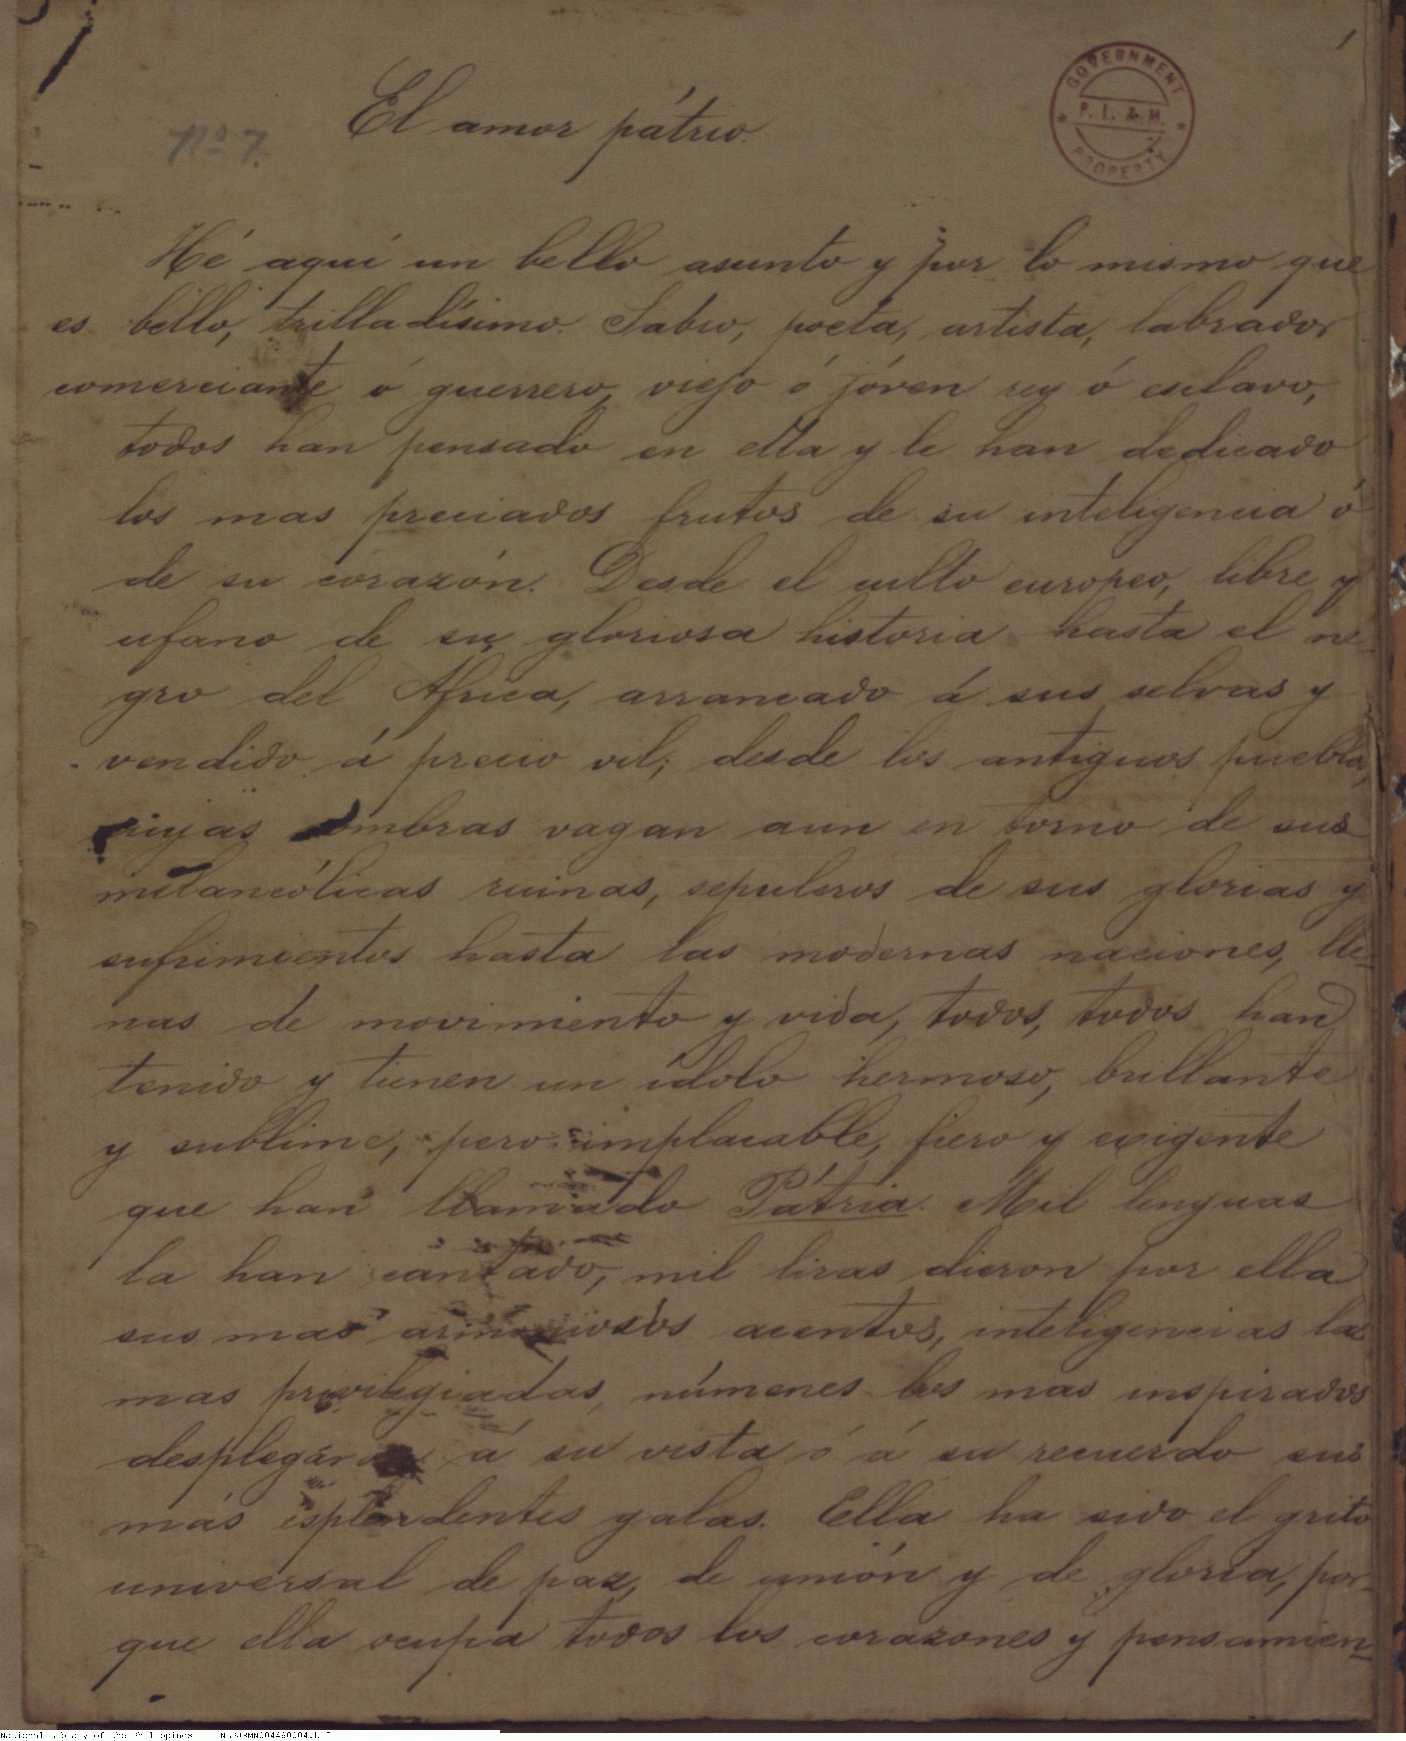 1
El amor pátrio.
Nº 7.
GOVERNMENT
P. I. & M.
PROPERTY
Hé aquí un bello asunto y por lo mismo que
es bello, trilladísimo. Sabio, poeta, artista, labrador
comerciante ó guerrero, viejo ó jóven rey ó esclavo,
todos han pensado en ella y le han dedicado
los mas preciados frutos de su inteligencia ó
de su corazón. Desde el culto europeo, libre y
ufano de su gloriosa historia hasta el ne-
gro del Africa, arrancado á sus selvas y
vendido á precio vil; desde los antiguos pueblos,
cuyas sombras vagan aun en torno de sus
melancólicas ruinas, sepulcros de sus glorias y
sufrimientos hasta las modernas naciones, lle-
nas de movimiento y vida, todos, todos han
tenido y tienen un ídolo hermoso, brillante
y sublime, pero implacable, fiero y exigente
que han llamado Pátria. Mil lenguas
la han cantado, mil liras dieron por ella
sus mas armoniosos acentos, inteligencias las
mas privilegiadas, númenes los mas inspirados
desplegáron á su vista ó á su recuerdo sus
más esplendentes galas. Ella ha sido el grito
universal de paz, de unión y de gloria, por-
que ella ocupa todos los corazones y pensamien-
National Library of the Philippines